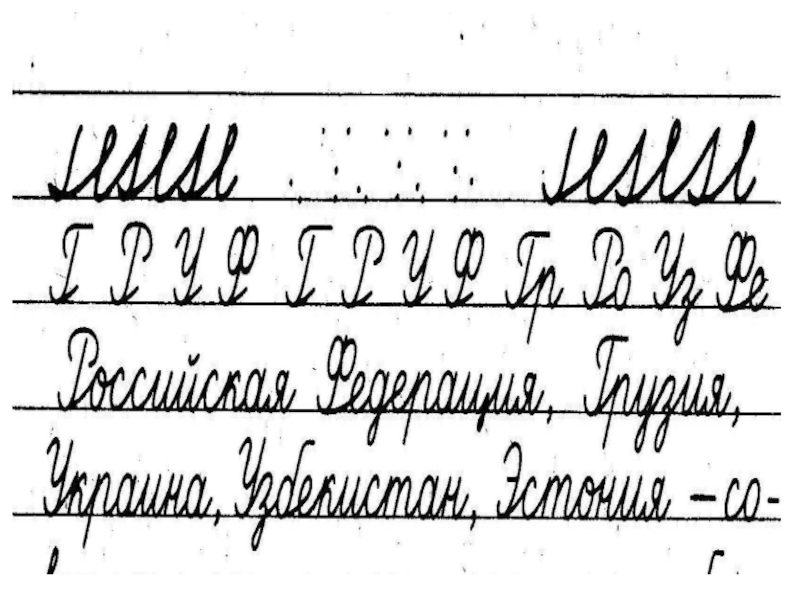 Г Р У Ф Г Р У Ф Гр Ро Уз Фе
Российская Федерация, Грузия,
Украина, Узбекистан, Эстония – со-